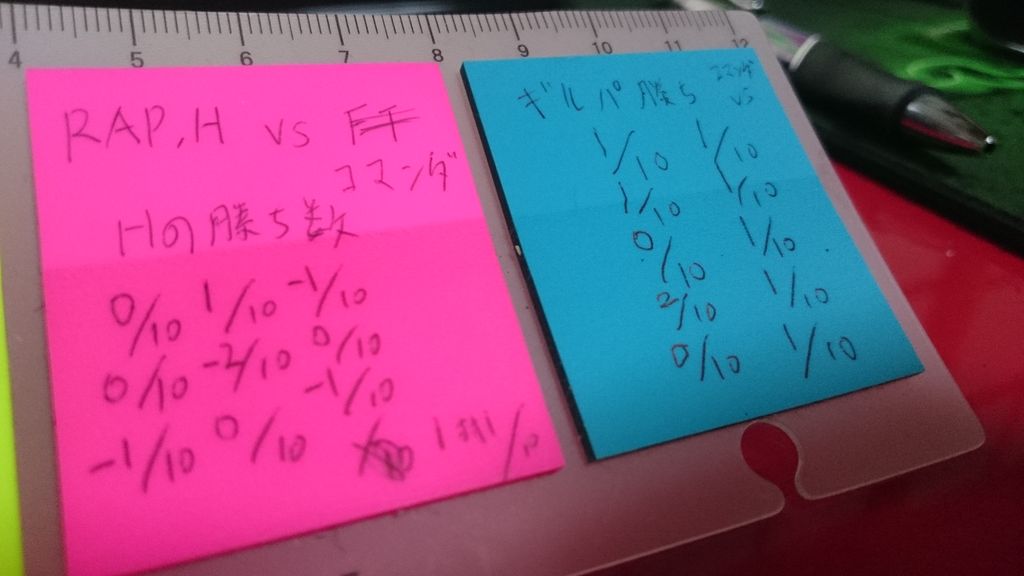 4 5 6 7 8 9 10 11 12
RAP,H vs
コマンダ
Hの勝ち数
0/10 1/10 -1/10
0/10 -2/10 0/10
-1/10
-1/10 0/10
ギルパ勝ち コマンダ
vs
1/10 1/10
1/10 1/10
0/10 1/10
2/10 1/10
0/10 1/10